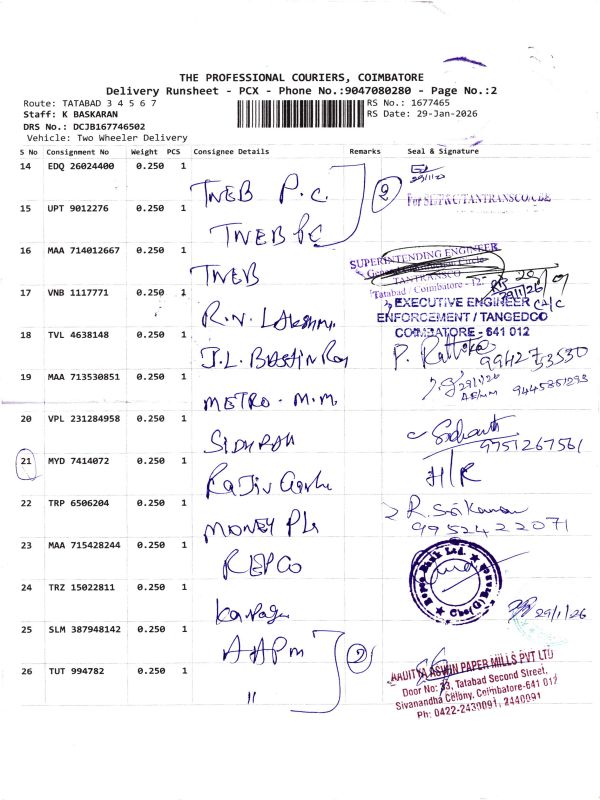 THE PROFESSIONAL COURIERS, COIMBATORE
Delivery Runsheet - PCX - Phone No.:9047080280 - Page No.:2
Route: TATABAD 3 4 5 6 7
RS No.: 1677465
Staff: K BASKARAN
RS Date: 29-Jan-2026
DRS No.: DCJB167746502
Vehicle: Two Wheeler Delivery
S No Consignment No Weight PCS Consignee Details Remarks Seal & Signature
14 EDQ 26024400 0.250 1 TNEB P.C.
15 UPT 9012276 0.250 1 TNEB PC
2
16 MAA 714012667 0.250 1 TNEB
SUPERINTENDING ENGINEER
TANTRANSCO
Tatabad / Coimbatore - 12.
17 VNB 1117771 0.250 1 R.N. Lakshmi
EXECUTIVE ENGINEER
ENFORCEMENT / TANGEDCO
COIMBATORE - 641 012
18 TVL 4638148 0.250 1 J.L. Bastin Roy
P. Rathika 9942753530
19 MAA 713530851 0.250 1 METRO. M.M.
29/1/26
9445851293
20 VPL 231284958 0.250 1
Sidharth
9751267561
21 MYD 7414072 0.250 1
H/R
22 TRP 6506204 0.250 1 MONEY
R. Sri
9952422071
23 MAA 715428244 0.250 1 REPCO
Repco Bank Ltd.
24 TRZ 15022811 0.250 1
29/1/26
25 SLM 387948142 0.250 1 AAPM
2
26 TUT 994782 0.250 1 "
AADITYA ASWIN PAPER MILLS PVT LTD
Door No: 33, Tatabad Second Street,
Sivanandha Colony, Coimbatore-641 012
Ph: 0422-2430091, 2440091